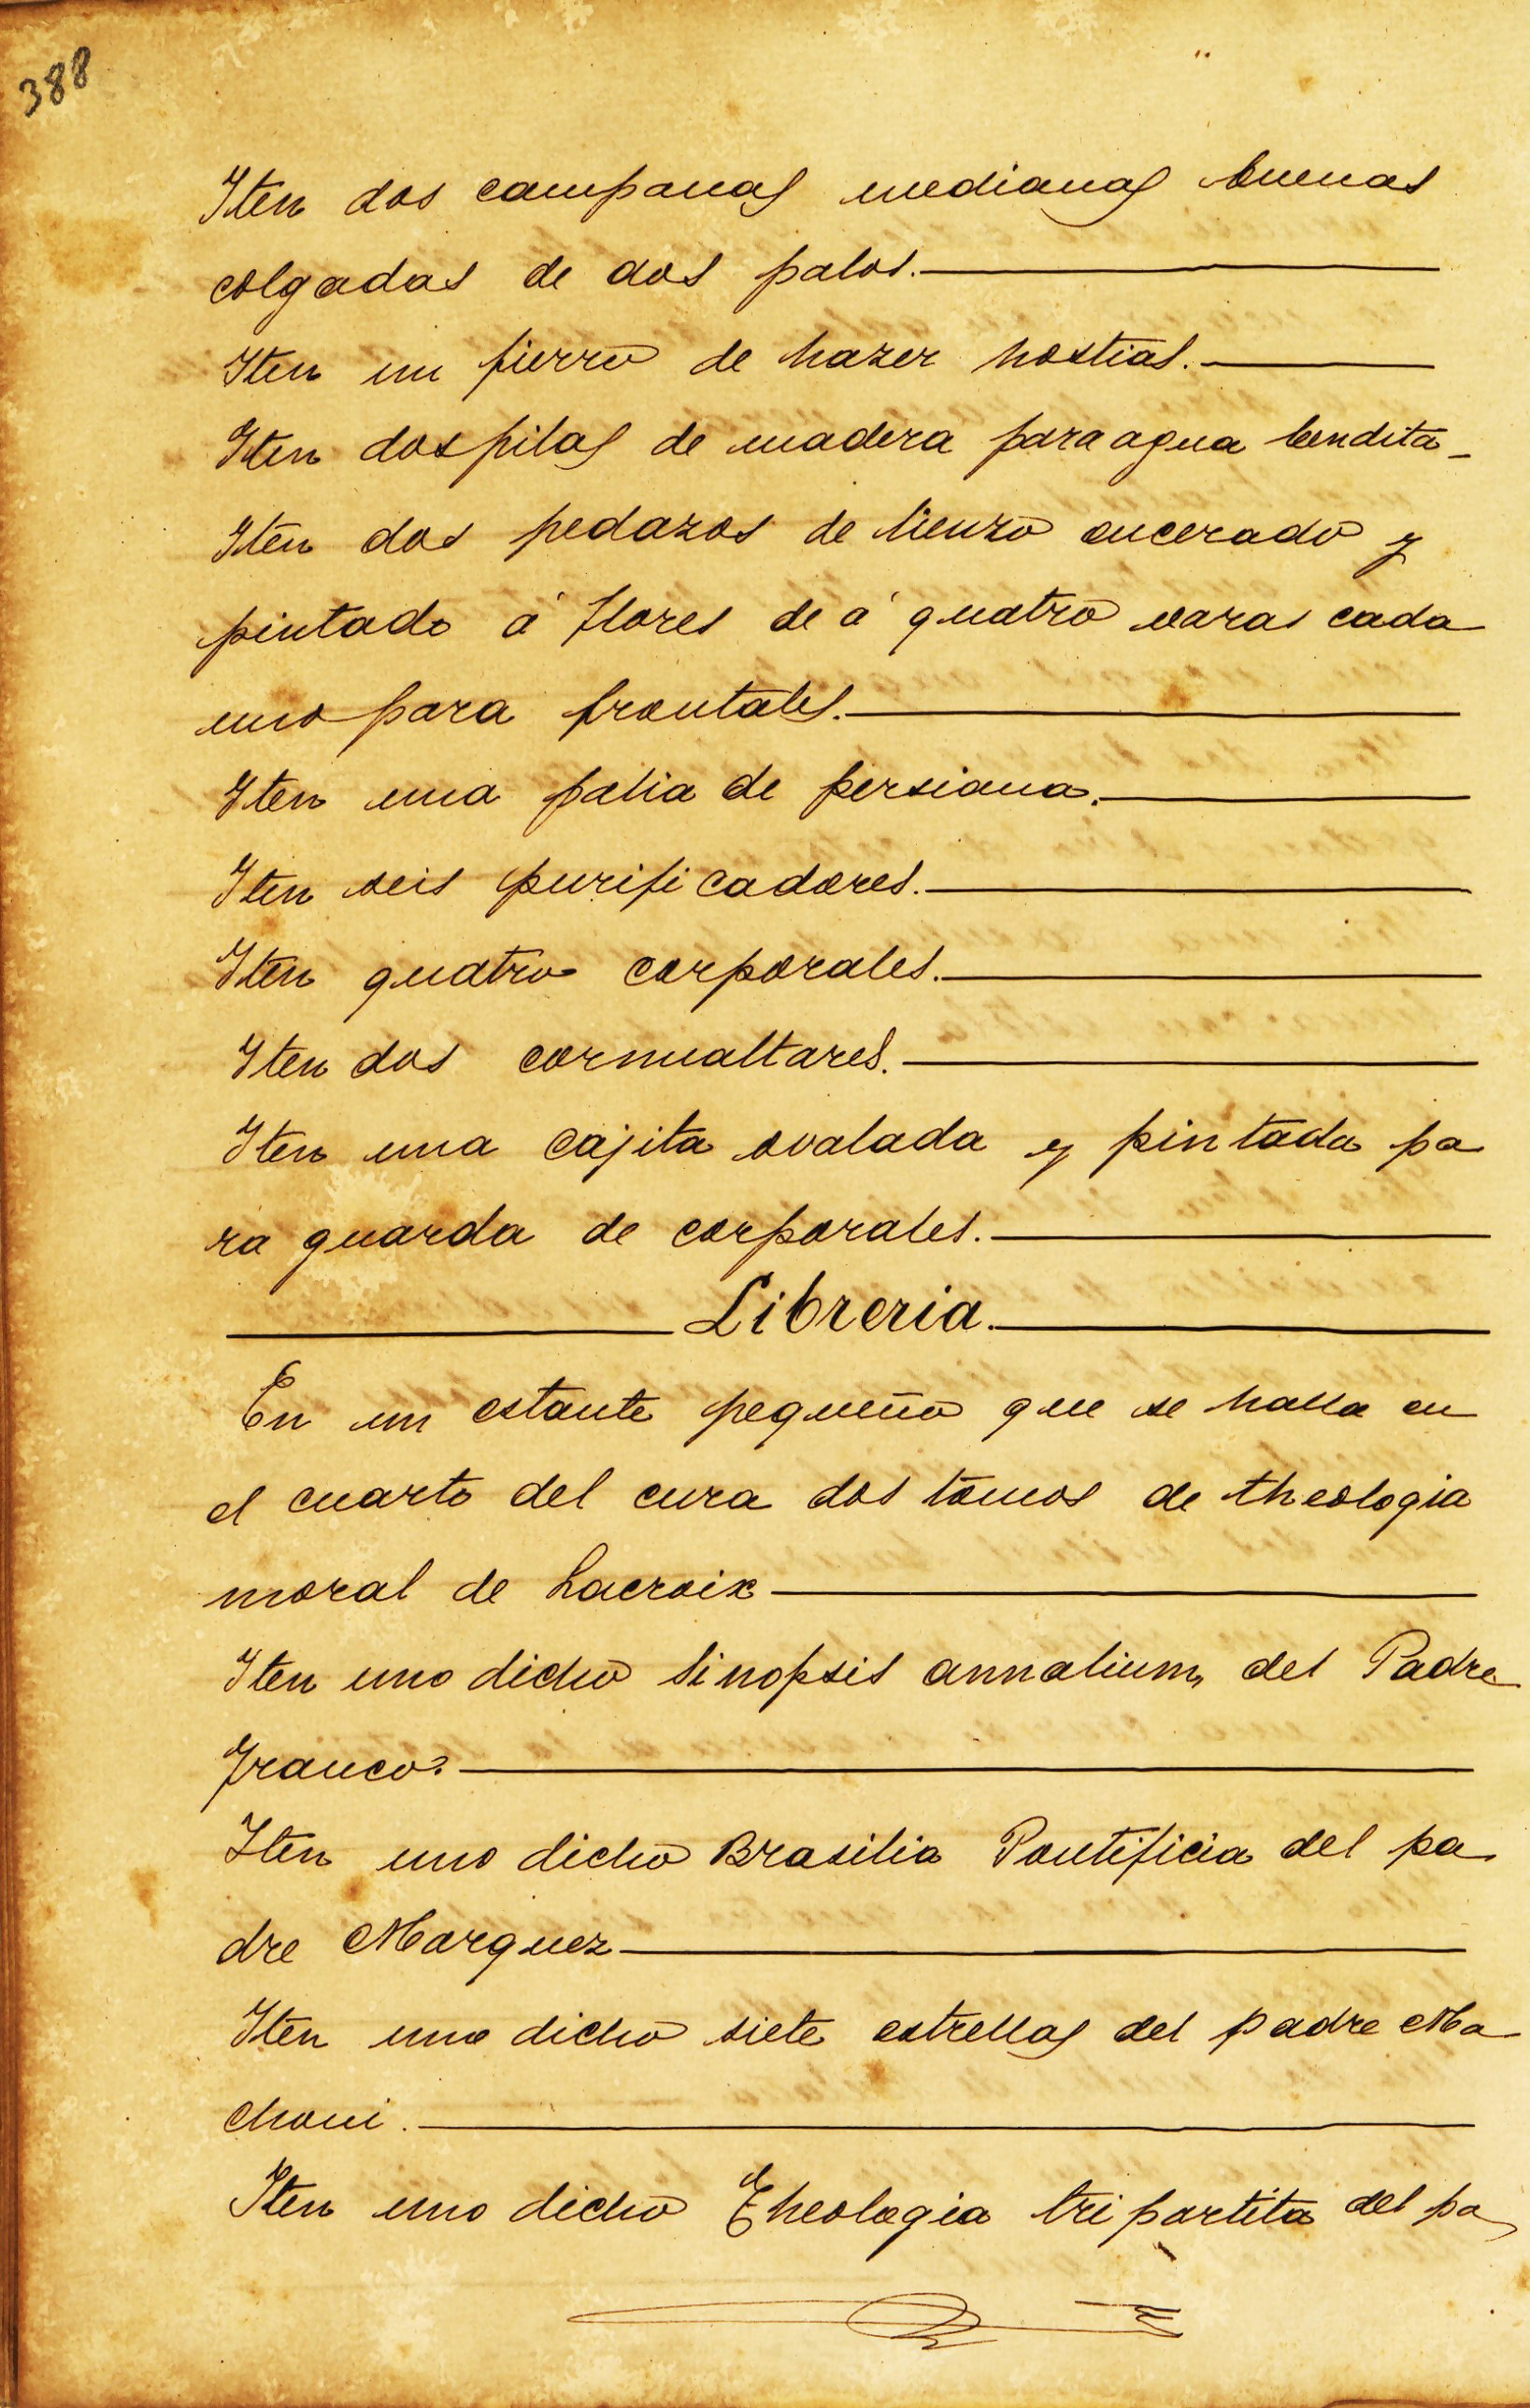 388
Iten dos campanas medianas buenas
colgadas de dos palos.
Iten un fierro de hazer hostias.
Iten dos pilas de madera para agua bendita
Iten dos pedazos de lienzo encerado y
pintado á flores de á quatro varas cada
uno para frontales.
Iten una palia de persiana.
Iten seis purificadores.
Iten quatro corporales.
Iten dos cornualtares.
Iten una cajita ovalada y pintada pa
ra guarda de corporales.
Libreria.
En un estante pequeño que se halla en
el cuarto del cura dos tomos de theologia
moral de Lacroix
Iten uno dicho Sinopsis annalium del Padre
Franco.
Iten uno dicho Brasilia Pontificia del pa
dre Marquez
Iten uno dicho siete estrellas del padre Ma
choni.
Iten uno dicho Theologia tripartita del pa